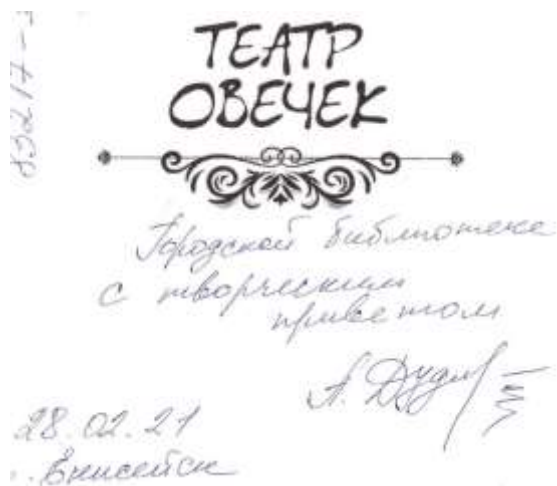 ТЕАТР
ОВЕЧЕК
Городской библиотеке
с творческим
приветом
28.02.21
Енисейск